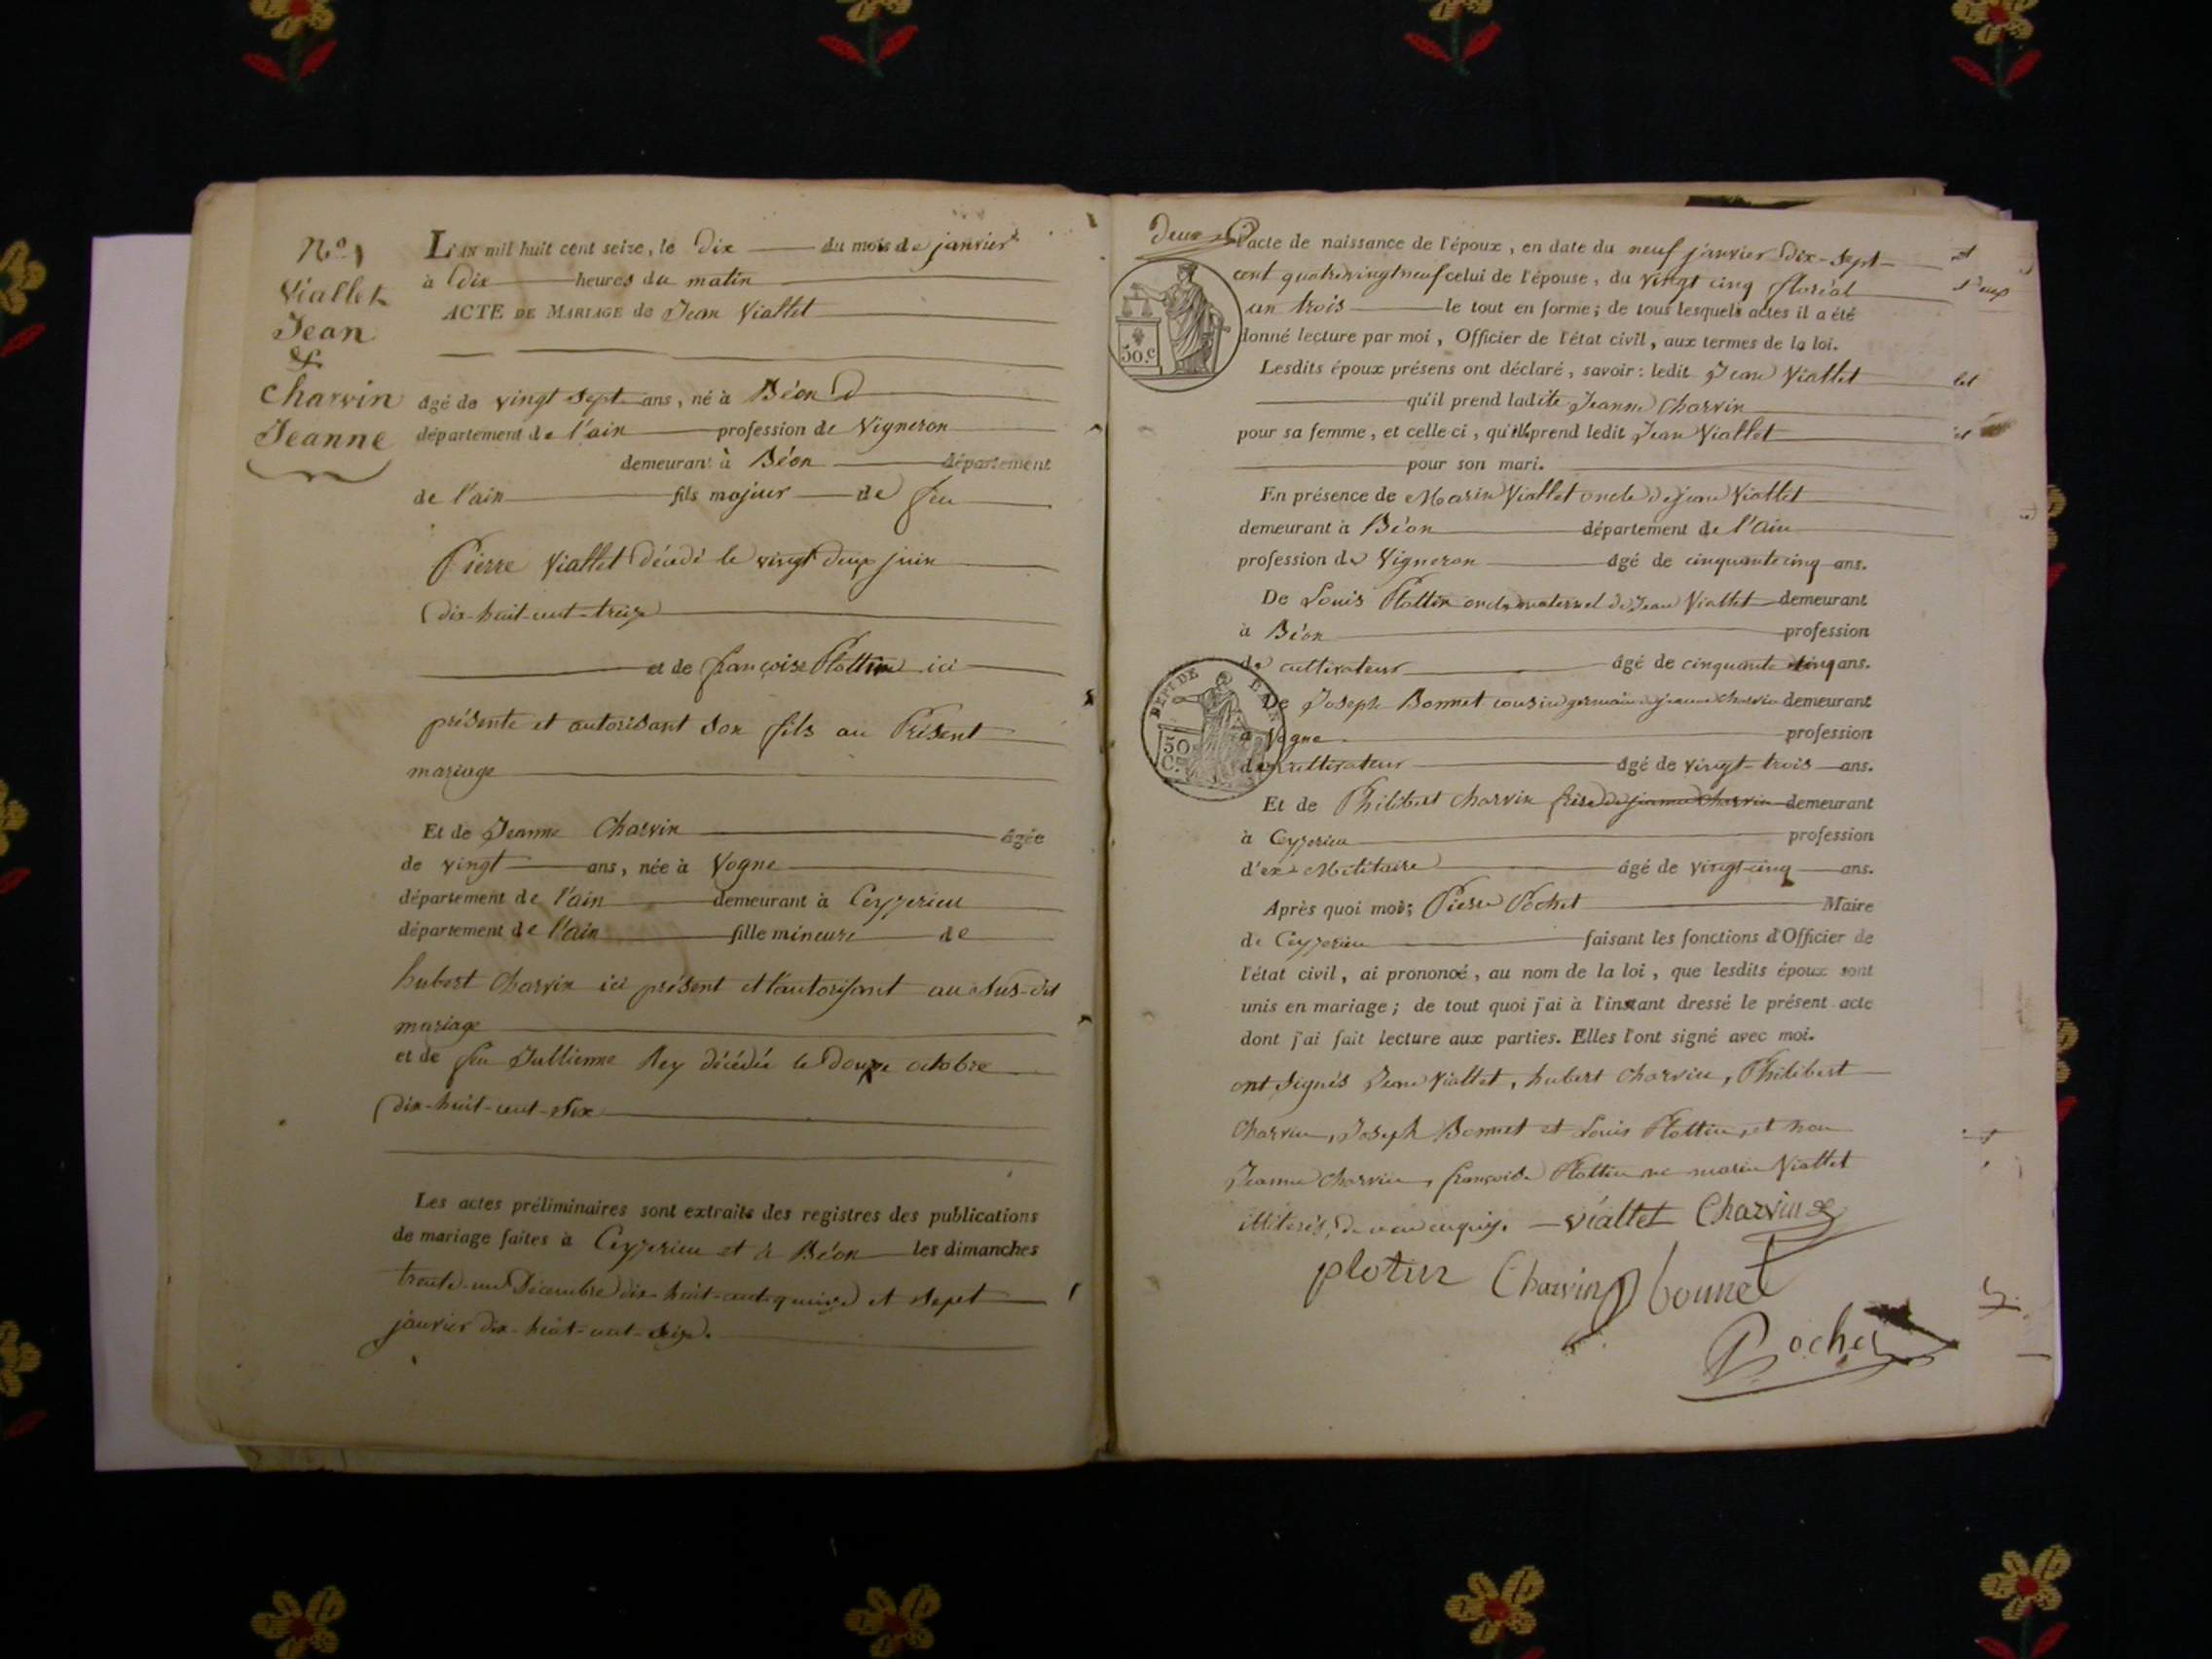 N° 1
Viallet
Jean
&
Charvin
Jeanne
L'AN mil huit cent seize, le Dix du mois de janvier
à Dix heures du matin
ACTE DE MARIAGE de Jean Viallet
âgé de vingt sept ans, né à Béon
département de l'ain profession de Vigneron
demeurant à Béon département
de l'ain fils majeur de feu
Pierre Viallet décédé le vingt deux juin
dix-huit-cent-treize
et de françoise Plottin ici
présente et autorisant son fils au Présent
mariage
Et de Jeanne Charvin âgée
de vingt ans, née à Vogne
département de l'ain demeurant à Ceyzerieu
département de l'ain fille mineure de
hubert Charvin ici présent et l'autorisant au sus-dit
mariage
et de feu Jullienne Rey décédée le Douze octobre
dix-huit-cent-six
Les actes préliminaires sont extraits des registres des publications
de mariage faites à Ceyzerieu et à Béon les dimanches
trente-un Décembre dix-huit-cent-quinze et sept
janvier dix-huit-cent-seize.
Deux
l'acte de naissance de l'époux, en date du neuf janvier Dix-sept-
cent quatrevingtneuf celui de l'épouse, du vingt cinq floréal
an trois le tout en forme; de tous lesquels actes il a été
donné lecture par moi, Officier de l'état civil, aux termes de la loi.
50.c
Lesdits époux présens ont déclaré, savoir: ledit Jean Viallet
qu'il prend ladite Jeanne Charvin
pour sa femme, et celle ci, qu'elle prend ledit Jean Viallet
pour son mari.
En présence de Marin Viallet oncle de jean Viallet
demeurant à Béon département de l'Ain
profession de Vigneron âgé de cinquante cinq ans.
De Louis Plottin oncle maternel de Jean Viallet demeurant
à Béon profession
de cultivateur âgé de cinquante cinq ans.
DEPT DE L'AIN
50 C.
De Joseph Bonnet cousin germain jeanne Charvin demeurant
à Vogne profession
de cultivateur âgé de vingt-trois ans.
Et de Philibert Charvin frère de jeanne Charvin demeurant
à Ceyzerieu profession
d'ex-Militaire âgé de vingt-cinq ans.
Après quoi moi; Pierre Pochet Maire
de Ceyzerieu faisant les fonctions d'Officier de
l'état civil, ai prononcé, au nom de la loi, que lesdits époux sont
unis en mariage; de tout quoi j'ai à l'instant dressé le présent acte
dont j'ai fait lecture aux parties. Elles l'ont signé avec moi.
ont signés Jean Viallet, hubert Charvin, Philibert
Charvin, Joseph Bonnet et Louis Plottin, et non
Jeanne Charvin, françoise Plottin ne marin Viallet
illiterés, de ce enquis. viallet Charvin
plotin Charvin bonnet
Pochet